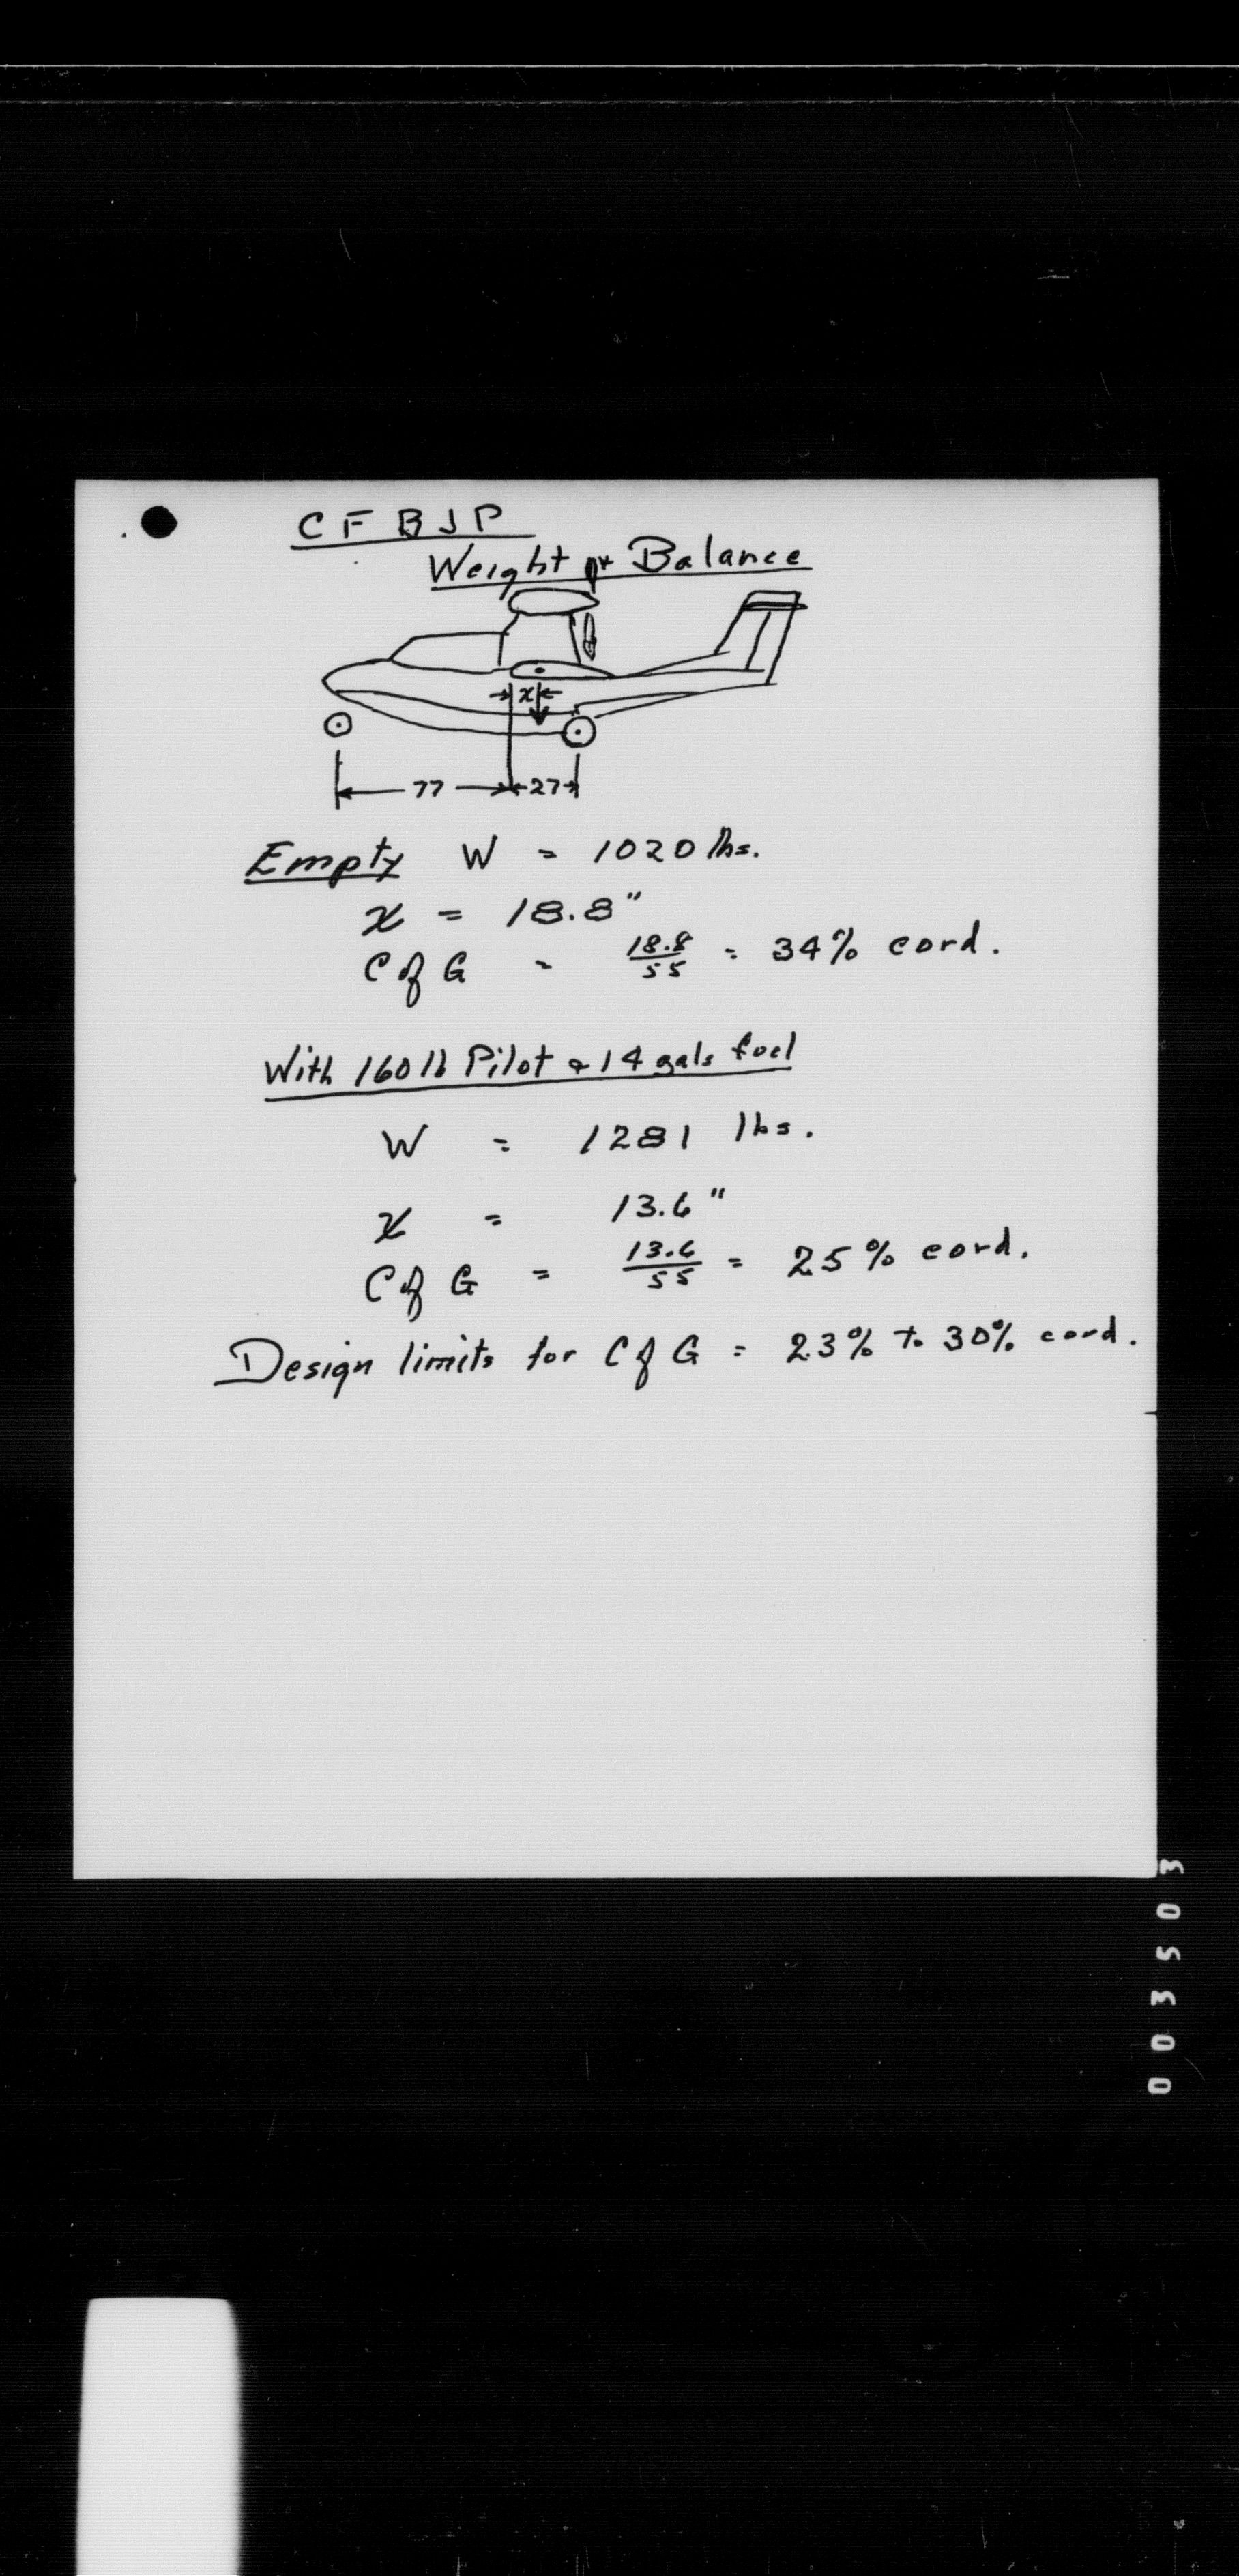 C F B J P
Weight & Balance
x
77
27
Empty W = 1020 lbs.
x = 18.8"
C of G = 18.8/55 = 34% cord.
With 160 lb Pilot & 14 gals fuel
W = 1281 lbs.
x = 13.6"
C of G = 13.6/55 = 25% cord.
Design limits for C of G = 23% to 30% cord.
003503